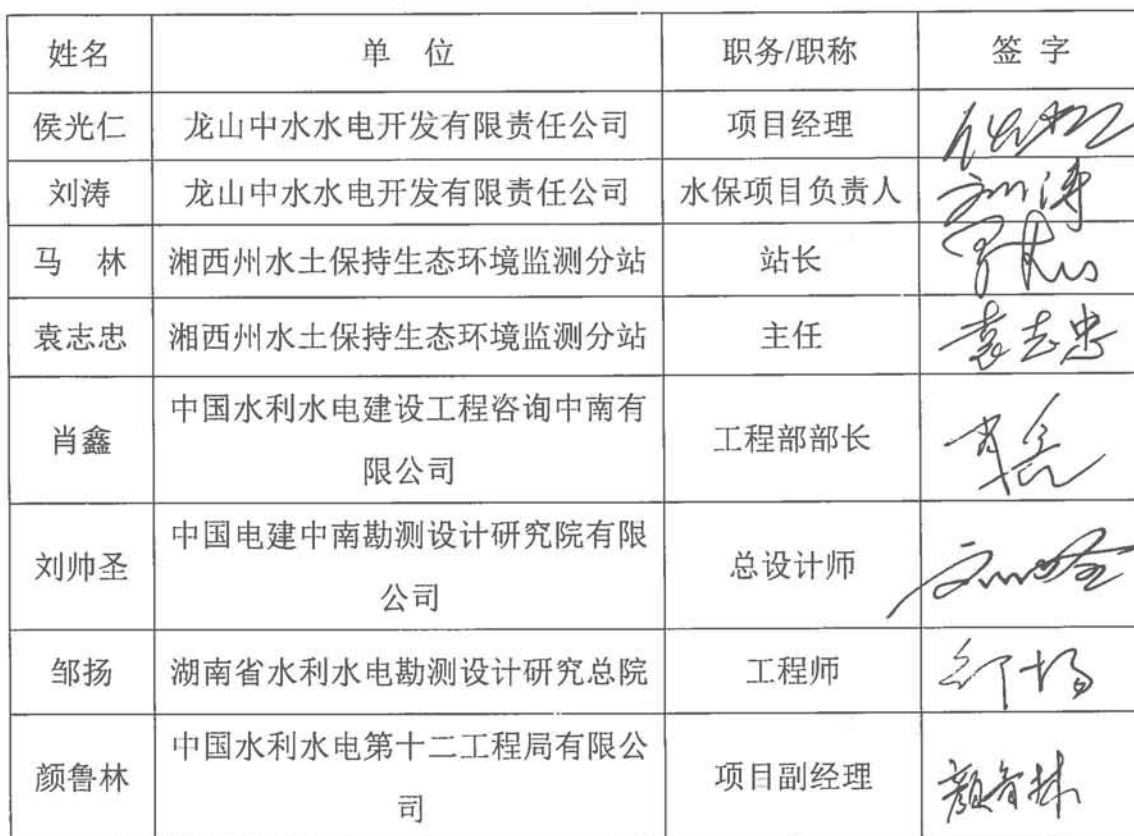 姓名 单 位 职务/职称 签 字
侯光仁 龙山中水水电开发有限责任公司 项目经理
刘涛 龙山中水水电开发有限责任公司 水保项目负责人 刘涛
马 林 湘西州水土保持生态环境监测分站 站长
袁志忠 湘西州水土保持生态环境监测分站 主任 袁志忠
中国水利水电建设工程咨询中南有
肖鑫 工程部部长
限公司
中国电建中南勘测设计研究院有限
刘帅圣 总设计师
公司
邹扬 湖南省水利水电勘测设计研究总院 工程师 邹扬
中国水利水电第十二工程局有限公
颜鲁林 项目副经理 颜鲁林
司